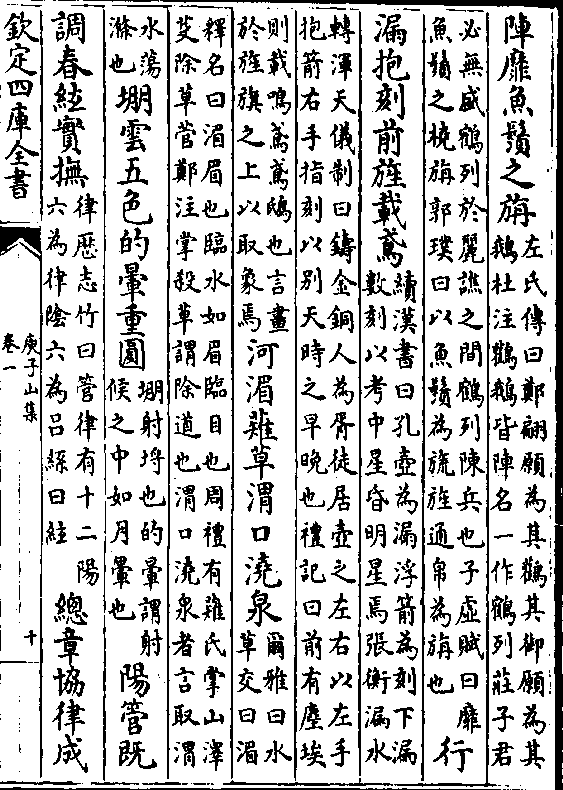 陣靡魚鬚之旃
左氏傳曰鄭翩願為其鸛其御願為其
鵝杜注鸛鵝皆陣名一作鶴列莊子君
必無盛鶴列於麗譙之間鶴列陳兵也子虛賦曰靡
魚鬚之橈旃郭璞曰以魚鬚為旒旌通帛為旃也
行
漏抱刻前旌載鳶
續漢書曰孔壺為漏浮箭為刻下漏
數刻以考中星昏明星焉張衡漏水
轉渾天儀制曰鑄金銅人為胥徒居壺之左右以左手
抱箭右手指刻以别天時之早晚也禮記曰前有塵埃
則載鳴鳶鳶鴟也言畫
於旌旗之上以取象焉
河湄薙草渭口澆泉
爾雅曰水
草交曰湄
釋名曰湄眉也臨水如眉臨目也周禮有薙氏掌山澤
芟除草菅鄭注掌殺草謂除道也渭口澆泉者言取渭
水蕩
滌也
堋雲五色的暈重圓
堋射埓也的暈謂射
候之中如月暈也
陽管既
調春絃實撫
律厯志竹曰管律有十二陽
六為律陰六為吕綵曰絃
總章協律成
欽定四庫全書
庾子山集
卷一
十